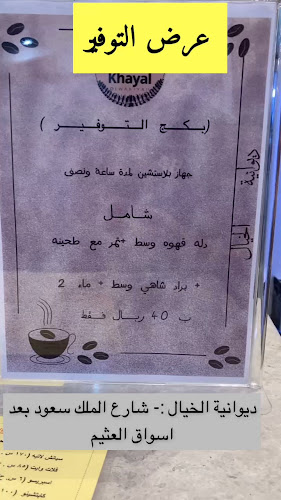 عرض التوفير
Khayal
(بكج التـوفيـر )
جهاز بلايستشين لمدة ساعة ونصف
شامل
دله قهوه وسط +تمر مع طحينه
+ براد شاهي وسط + ماء 2
ب 40 ريال فقط
ديوانية الخيال
ديوانية الخيال :- شارع الملك سعود بعد
اسواق العثيم